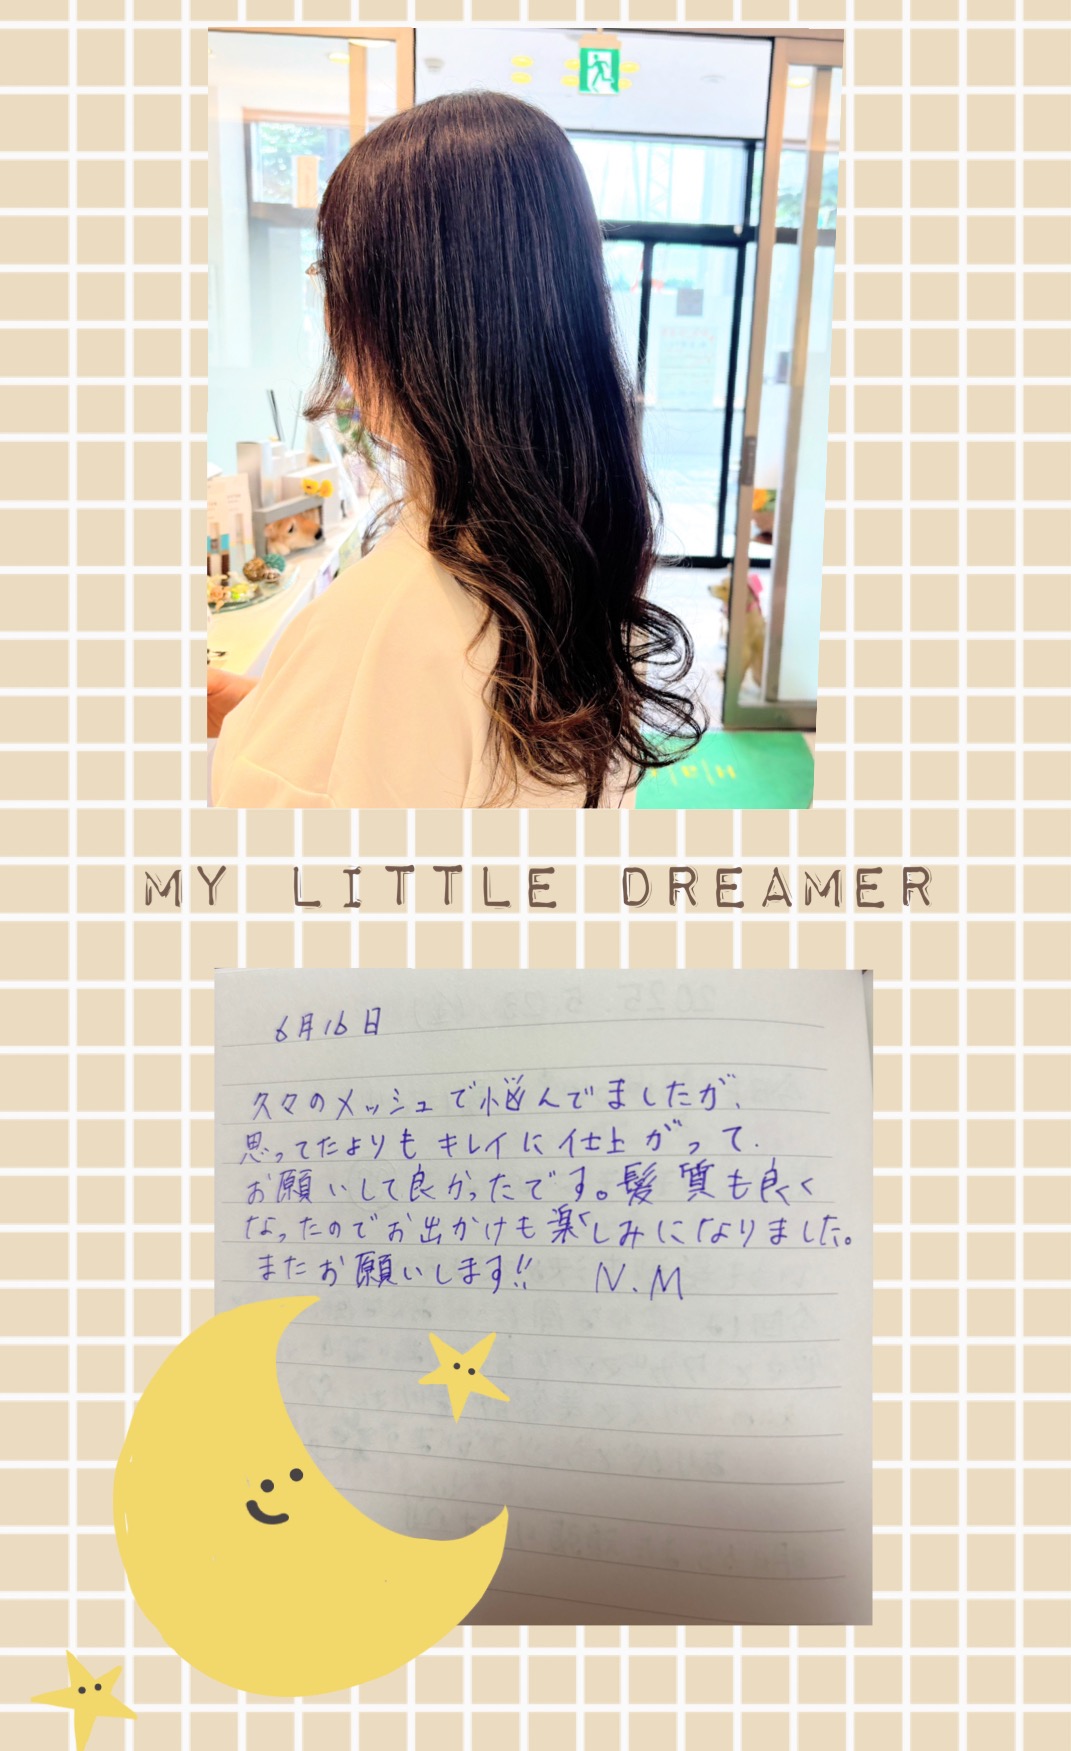 MY LITTLE DREAMER
6月16日
久々のメッシュで悩んでましたが、
思ってたよりもキレイに仕上がって.
お願いして良かったです。髪質も良く
なったのでお出かけも楽しみになりました。
またお願いします!! N.M